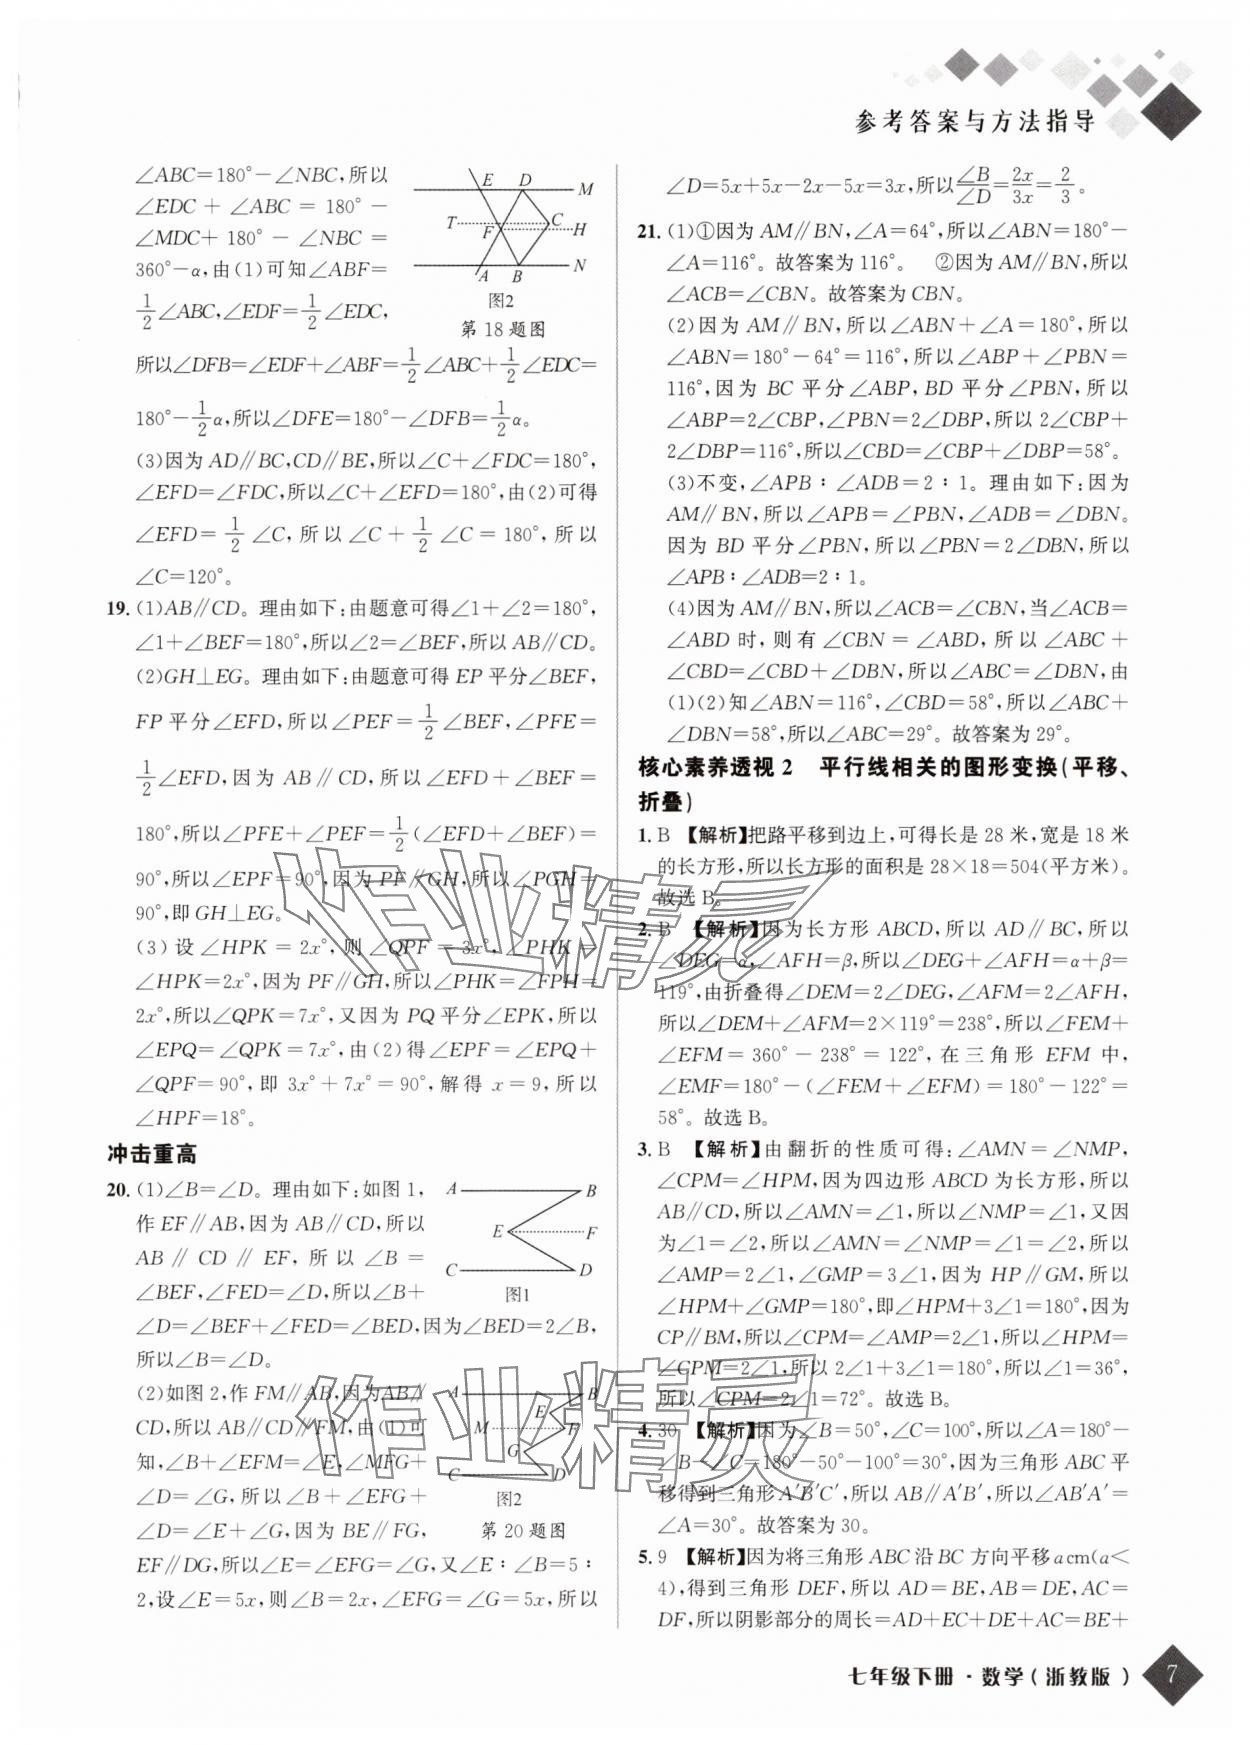 参考答案与方法指导
∠ABC=180°-∠NBC,所以
∠EDC+∠ABC=180°-
∠MDC+180°-∠NBC=
360°-α,由(1)可知∠ABF=
1/2∠ABC,∠EDF=1/2∠EDC,
E D M
T C
F H
A B N
图2
第18题图
所以∠DFB=∠EDF+∠ABF=1/2∠ABC+1/2∠EDC=
180°-1/2α,所以∠DFE=180°-∠DFB=1/2α。
(3)因为AD∥BC,CD∥BE,所以∠C+∠FDC=180°,
∠EFD=∠FDC,所以∠C+∠EFD=180°,由(2)可得
∠EFD=1/2∠C,所以∠C+1/2∠C=180°,所以
∠C=120°。
19.(1)AB∥CD。理由如下:由题意可得∠1+∠2=180°,
∠1+∠BEF=180°,所以∠2=∠BEF,所以AB∥CD。
(2)GH⊥EG。理由如下:由题意可得EP平分∠BEF,
FP平分∠EFD,所以∠PEF=1/2∠BEF,∠PFE=
1/2∠EFD,因为AB∥CD,所以∠EFD+∠BEF=
180°,所以∠PFE+∠PEF=1/2(∠EFD+∠BEF)=
90°,所以∠EPF=90°,因为PF∥GH,所以∠PGH=
90°,即GH⊥EG。
(3)设∠HPK=2x°,则∠QPF=3x°,∠PHK=
∠HPK=2x°,因为PF∥GH,所以∠PHK=∠FPH=
2x°,所以∠QPK=7x°,又因为PQ平分∠EPK,所以
∠EPQ=∠QPK=7x°,由(2)得∠EPF=∠EPQ+
∠QPF=90°,即3x°+7x°=90°,解得x=9,所以
∠HPF=18°。
冲击重高
20.(1)∠B=∠D。理由如下:如图1,
作EF∥AB,因为AB∥CD,所以
AB∥CD∥EF,所以∠B=
∠BEF,∠FED=∠D,所以∠B+
A B
E F
C D
图1
∠D=∠BEF+∠FED=∠BED,因为∠BED=2∠B,
所以∠B=∠D。
(2)如图2,作FM∥AB,因为AB∥
CD,所以AB∥CD∥FM,由(1)可
知,∠B+∠EFM=∠E,∠MFG+
∠D=∠G,所以∠B+∠EFG+
∠D=∠E+∠G,因为BE∥FG,
A B
E
M F
G
C D
图2
第20题图
EF∥DG,所以∠E=∠EFG=∠G,又∠E∶∠B=5∶
2,设∠E=5x,则∠B=2x,∠EFG=∠G=5x,所以
∠D=5x+5x-2x-5x=3x,所以∠B/∠D=2x/3x=2/3。
21.(1)①因为AM∥BN,∠A=64°,所以∠ABN=180°-
∠A=116°。故答案为116°。 ②因为AM∥BN,所以
∠ACB=∠CBN。故答案为CBN。
(2)因为AM∥BN,所以∠ABN+∠A=180°,所以
∠ABN=180°-64°=116°,所以∠ABP+∠PBN=
116°,因为BC平分∠ABP,BD平分∠PBN,所以
∠ABP=2∠CBP,∠PBN=2∠DBP,所以2∠CBP+
2∠DBP=116°,所以∠CBD=∠CBP+∠DBP=58°。
(3)不变,∠APB∶∠ADB=2∶1。理由如下:因为
AM∥BN,所以∠APB=∠PBN,∠ADB=∠DBN。
因为BD平分∠PBN,所以∠PBN=2∠DBN,所以
∠APB∶∠ADB=2∶1。
(4)因为AM∥BN,所以∠ACB=∠CBN,当∠ACB=
∠ABD时,则有∠CBN=∠ABD,所以∠ABC+
∠CBD=∠CBD+∠DBN,所以∠ABC=∠DBN,由
(1)(2)知∠ABN=116°,∠CBD=58°,所以∠ABC+
∠DBN=58°,所以∠ABC=29°。故答案为29°。
核心素养透视2 平行线相关的图形变换(平移、
折叠)
1.B 【解析】把路平移到边上,可得长是28米,宽是18米
的长方形,所以长方形的面积是28×18=504(平方米)。
故选B。
2.B 【解析】因为长方形ABCD,所以AD∥BC,所以
∠DEG=α,∠AFH=β,所以∠DEG+∠AFH=α+β=
119°,由折叠得∠DEM=2∠DEG,∠AFM=2∠AFH,
所以∠DEM+∠AFM=2×119°=238°,所以∠FEM+
∠EFM=360°-238°=122°,在三角形EFM中,
∠EMF=180°-(∠FEM+∠EFM)=180°-122°=
58°。故选B。
3.B 【解析】由翻折的性质可得:∠AMN=∠NMP,
∠CPM=∠HPM,因为四边形ABCD为长方形,所以
AB∥CD,所以∠AMN=∠1,所以∠NMP=∠1,又因
为∠1=∠2,所以∠AMN=∠NMP=∠1=∠2,所以
∠AMP=2∠1,∠GMP=3∠1,因为HP∥GM,所以
∠HPM+∠GMP=180°,即∠HPM+3∠1=180°,因为
CP∥BM,所以∠CPM=∠AMP=2∠1,所以∠HPM=
∠CPM=2∠1,所以2∠1+3∠1=180°,所以∠1=36°,
所以∠CPM=2∠1=72°。故选B。
4.30 【解析】因为∠B=50°,∠C=100°,所以∠A=180°-
∠B-∠C=180°-50°-100°=30°,因为三角形ABC平
移得到三角形A′B′C′,所以AB∥A′B′,所以∠AB′A′=
∠A=30°。故答案为30。
5.9 【解析】因为将三角形ABC沿BC方向平移a cm(a<
4),得到三角形DEF,所以AD=BE,AB=DE,AC=
DF,所以阴影部分的周长=AD+EC+DE+AC=BE+
作业精灵
作业精灵
七年级下册·数学(浙教版)
7